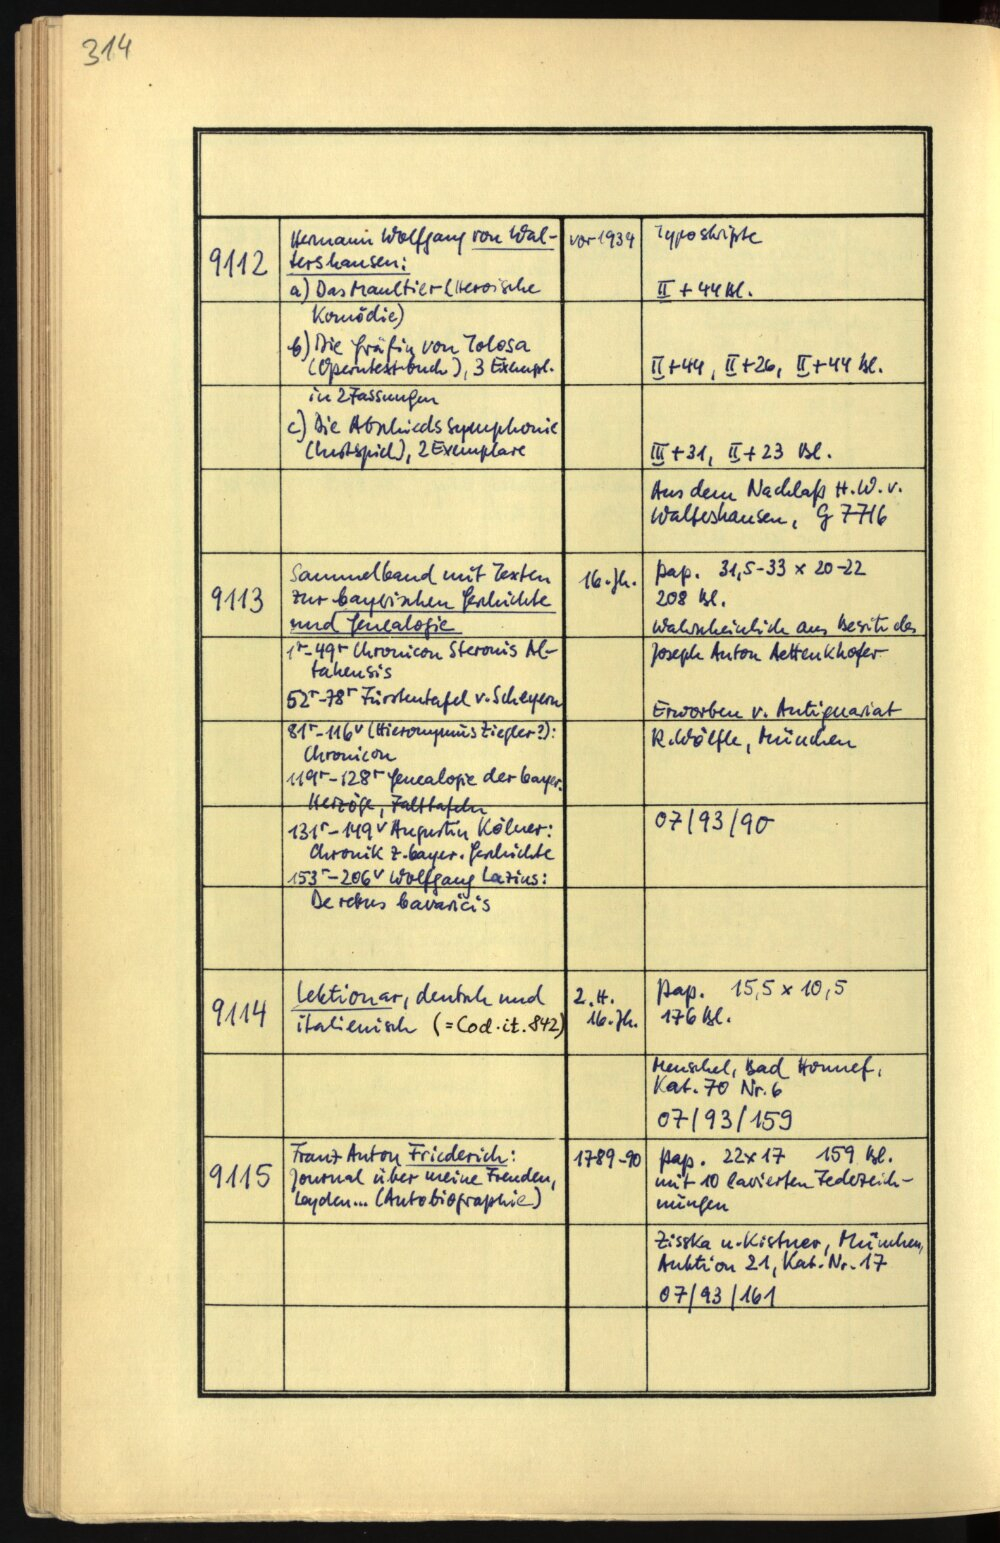 314
9112
Hermann Wolfgang von Wal-
tershausen:
a) Das Maultier (Heroische
Komödie)
b) Die Gräfin von Tolosa
(Operntextbuch), 3 Exempl.
in 2 Fassungen
c) Die Abschiedssymphonie
(Lustspiel), 2 Exemplare
vor 1934
Typoskripte
II + 44 Bl.
II+44, II+26, II+44 Bl.
III+31, II+23 Bl.
Aus dem Nachlaß H.W.v.
Waltershausen, G 7716
9113
Sammelband mit Texten
zur bayerischen Geschichte
und Genealogie
1r-49r Chronicon Steronis Al-
tahensis
52r-78r Fürstentafel v. Scheyern
81r-116v (Hieronymus Ziegler?):
Chronicon
119r-128r Genealogie der bayer.
Herzöge, Falttafeln
131r-149v Augustin Kölner:
Chronik z. bayer. Geschichte
153r-206v Wolfgang Lazius:
De rebus bavaricis
16. Jh.
Pap. 31,5-33 x 20-22
208 Bl.
Wahrscheinlich aus Besitz des
Joseph Anton Aettenkhofer
Erworben v. Antiquariat
R. Wölfle, München
07/93/90
9114
Lektionar, deutsch und
italienisch (=Cod. it. 842)
2. H.
16. Jh.
Pap. 15,5 x 10,5
176 Bl.
Henschel, Bad Honnef,
Kat. 70 Nr. 6
07/93/159
9115
Franz Anton Friederich:
Journal über meine Freuden,
Leyden... (Autobiographie)
1789-90
Pap. 22x17 159 Bl.
mit 10 lavierten Federzeich-
nungen
Zisska u. Kistner, München,
Auktion 21, Kat. Nr. 17
07/93/161